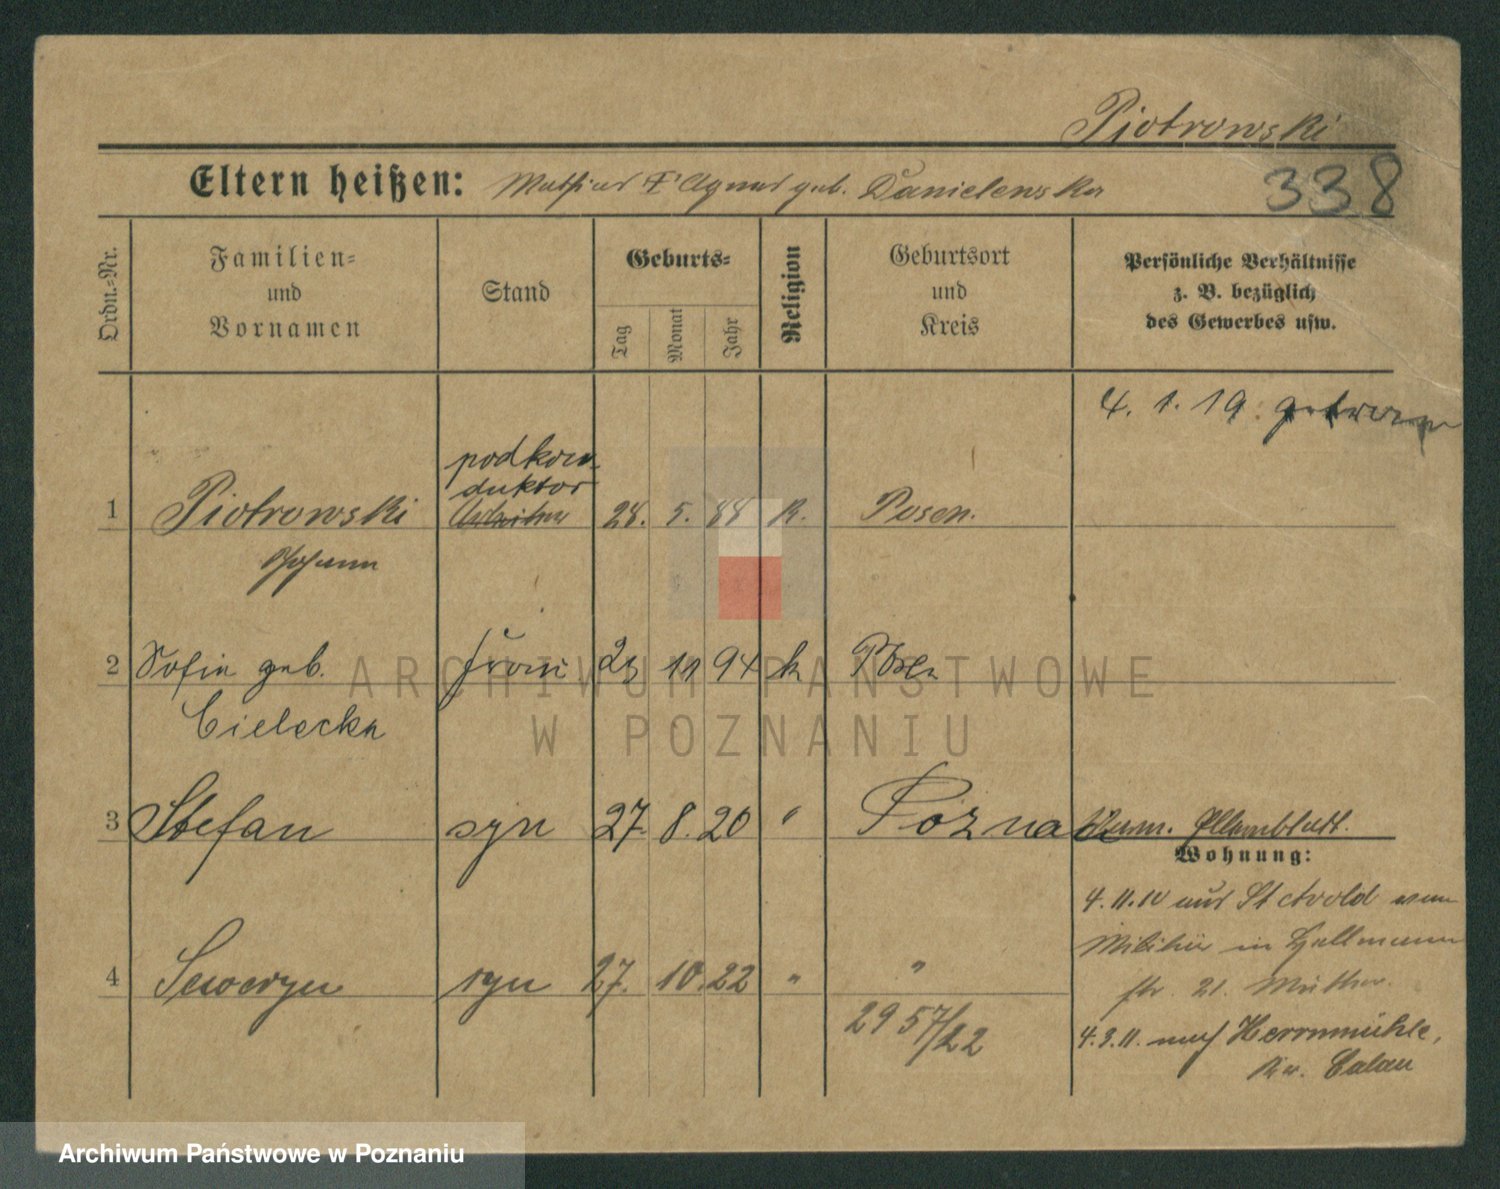 Piotrowski
Eltern heißen: Mathias F Agnes geb. Danielewska
338
Ordn.-Nr.
Familien-
und
Vornamen
Stand
Geburts-
Tag
Monat
Jahr
Religion
Geburtsort
und
Kreis
Persönliche Verhältnisse
z. B. bezüglich
des Gewerbes usw.
4. 1. 19.
podkon
duktor
1 Piotrowski Arbeiter 28. 5. 88 K. Posen.
Johann
2 Sofia geb. Frau 11 94 k Posen
Cielecka
3 Stefan syn 27. 8. 20 " Pozna
Wohnung:
4. 11. 10 aus
Militär in
str. 21. Mutter.
4 Seweryn syn 27. 10. 22 " "
2957/22
4. 3. 11. nach Herrnmühle,
Kr. Calau
ARCHIWUM PAŃSTWOWE
W POZNANIU
Archiwum Państwowe w Poznaniu